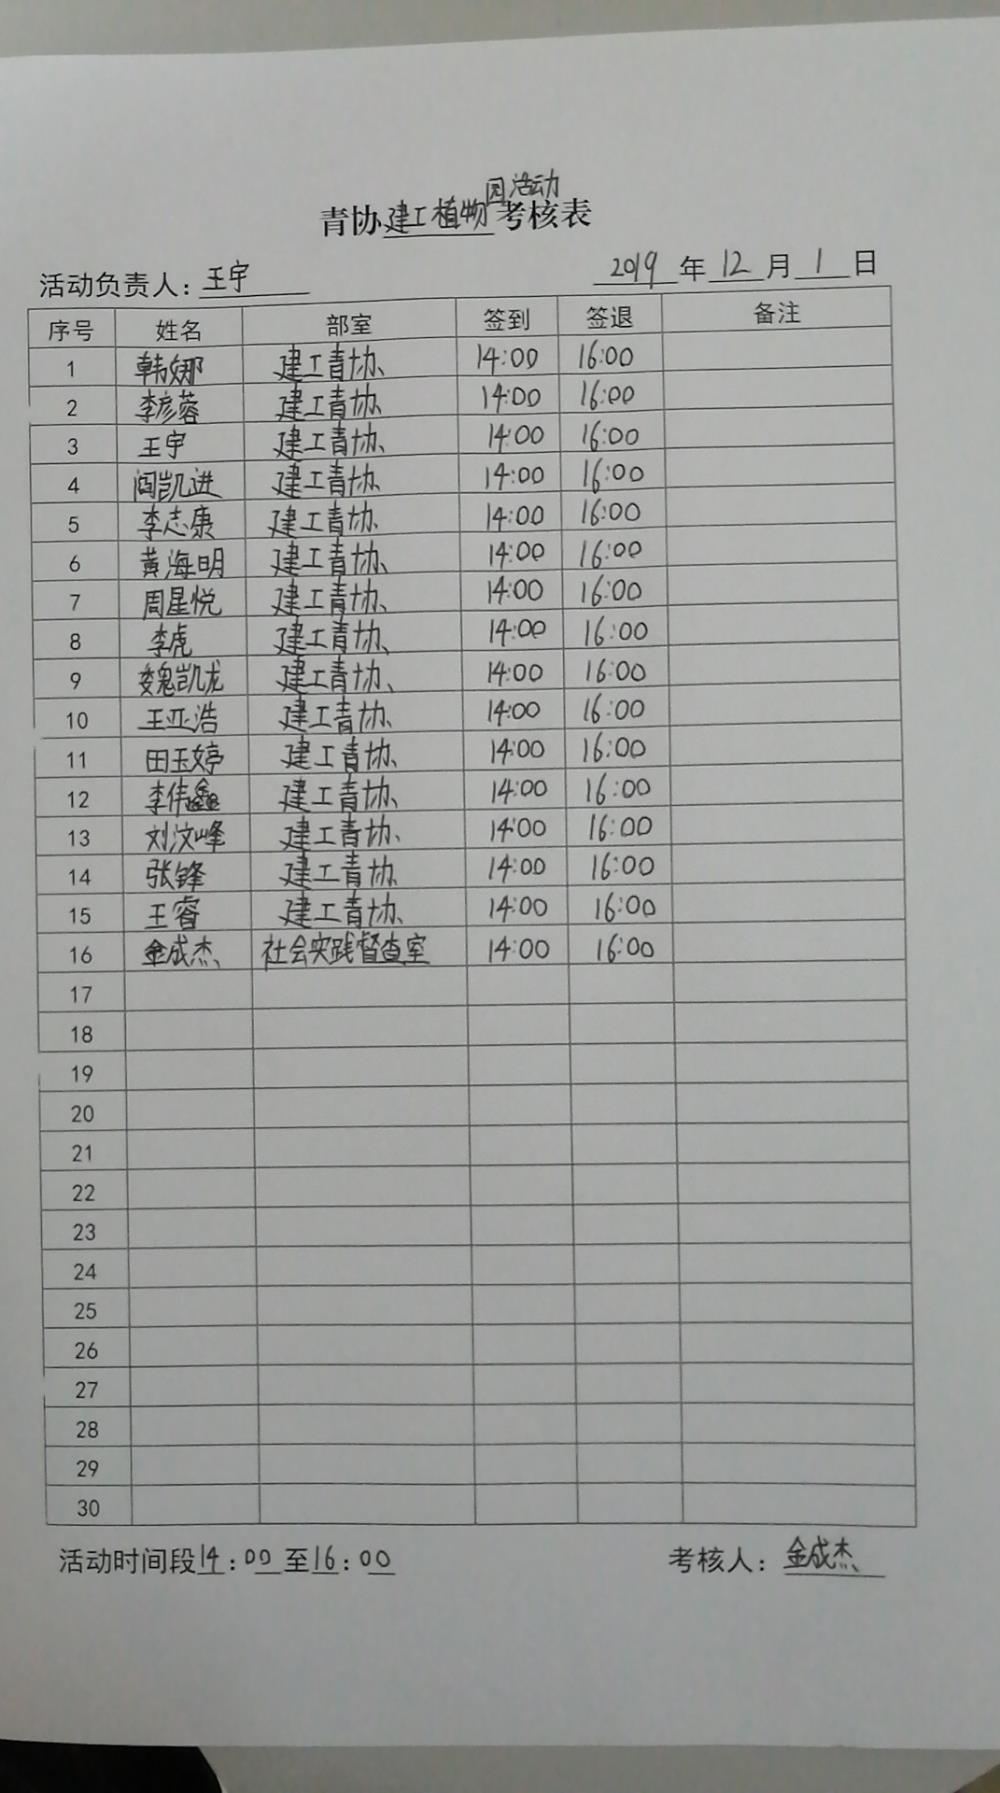 青协建工植物园活动考核表
活动负责人：王宇 2019年12月1日
序号 姓名 部室 签到 签退 备注
1 韩娜 建工青协 14:00 16:00
2 李彦蓉 建工青协 14:00 16:00
3 王宇 建工青协 14:00 16:00
4 阎凯进 建工青协 14:00 16:00
5 李志康 建工青协 14:00 16:00
6 黄海明 建工青协 14:00 16:00
7 周星悦 建工青协 14:00 16:00
8 李虎 建工青协 14:00 16:00
9 魏凯龙 建工青协 14:00 16:00
10 王亚浩 建工青协 14:00 16:00
11 田玉婷 建工青协 14:00 16:00
12 李伟鑫 建工青协 14:00 16:00
13 刘汶峰 建工青协 14:00 16:00
14 张锋 建工青协 14:00 16:00
15 王睿 建工青协 14:00 16:00
16 金成杰 社会实践督查室 14:00 16:00
17
18
19
20
21
22
23
24
25
26
27
28
29
30
活动时间段14:00至16:00 考核人：金成杰